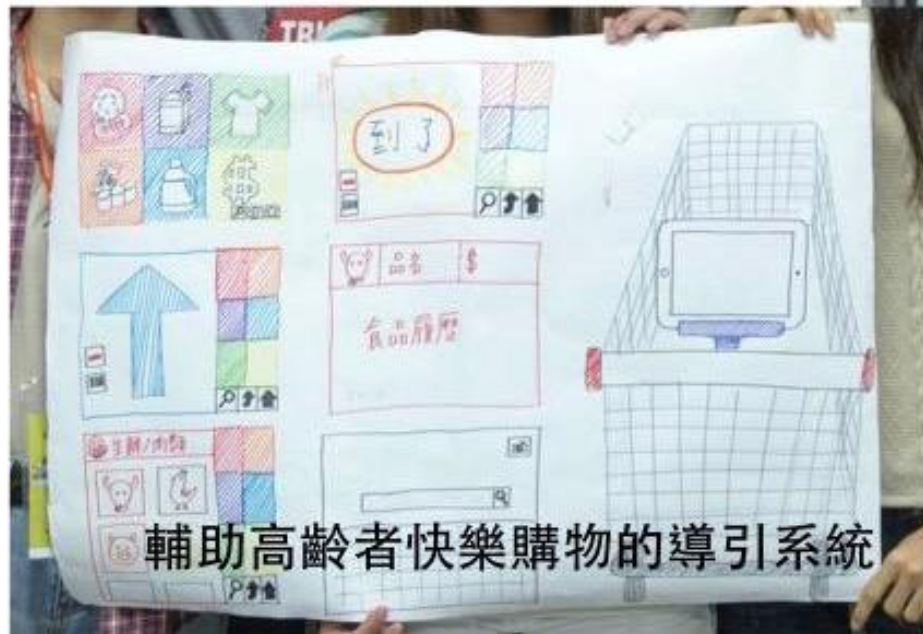 到了
品名
$
食品履歷
生鮮/肉類
輔助高齡者快樂購物的導引系統